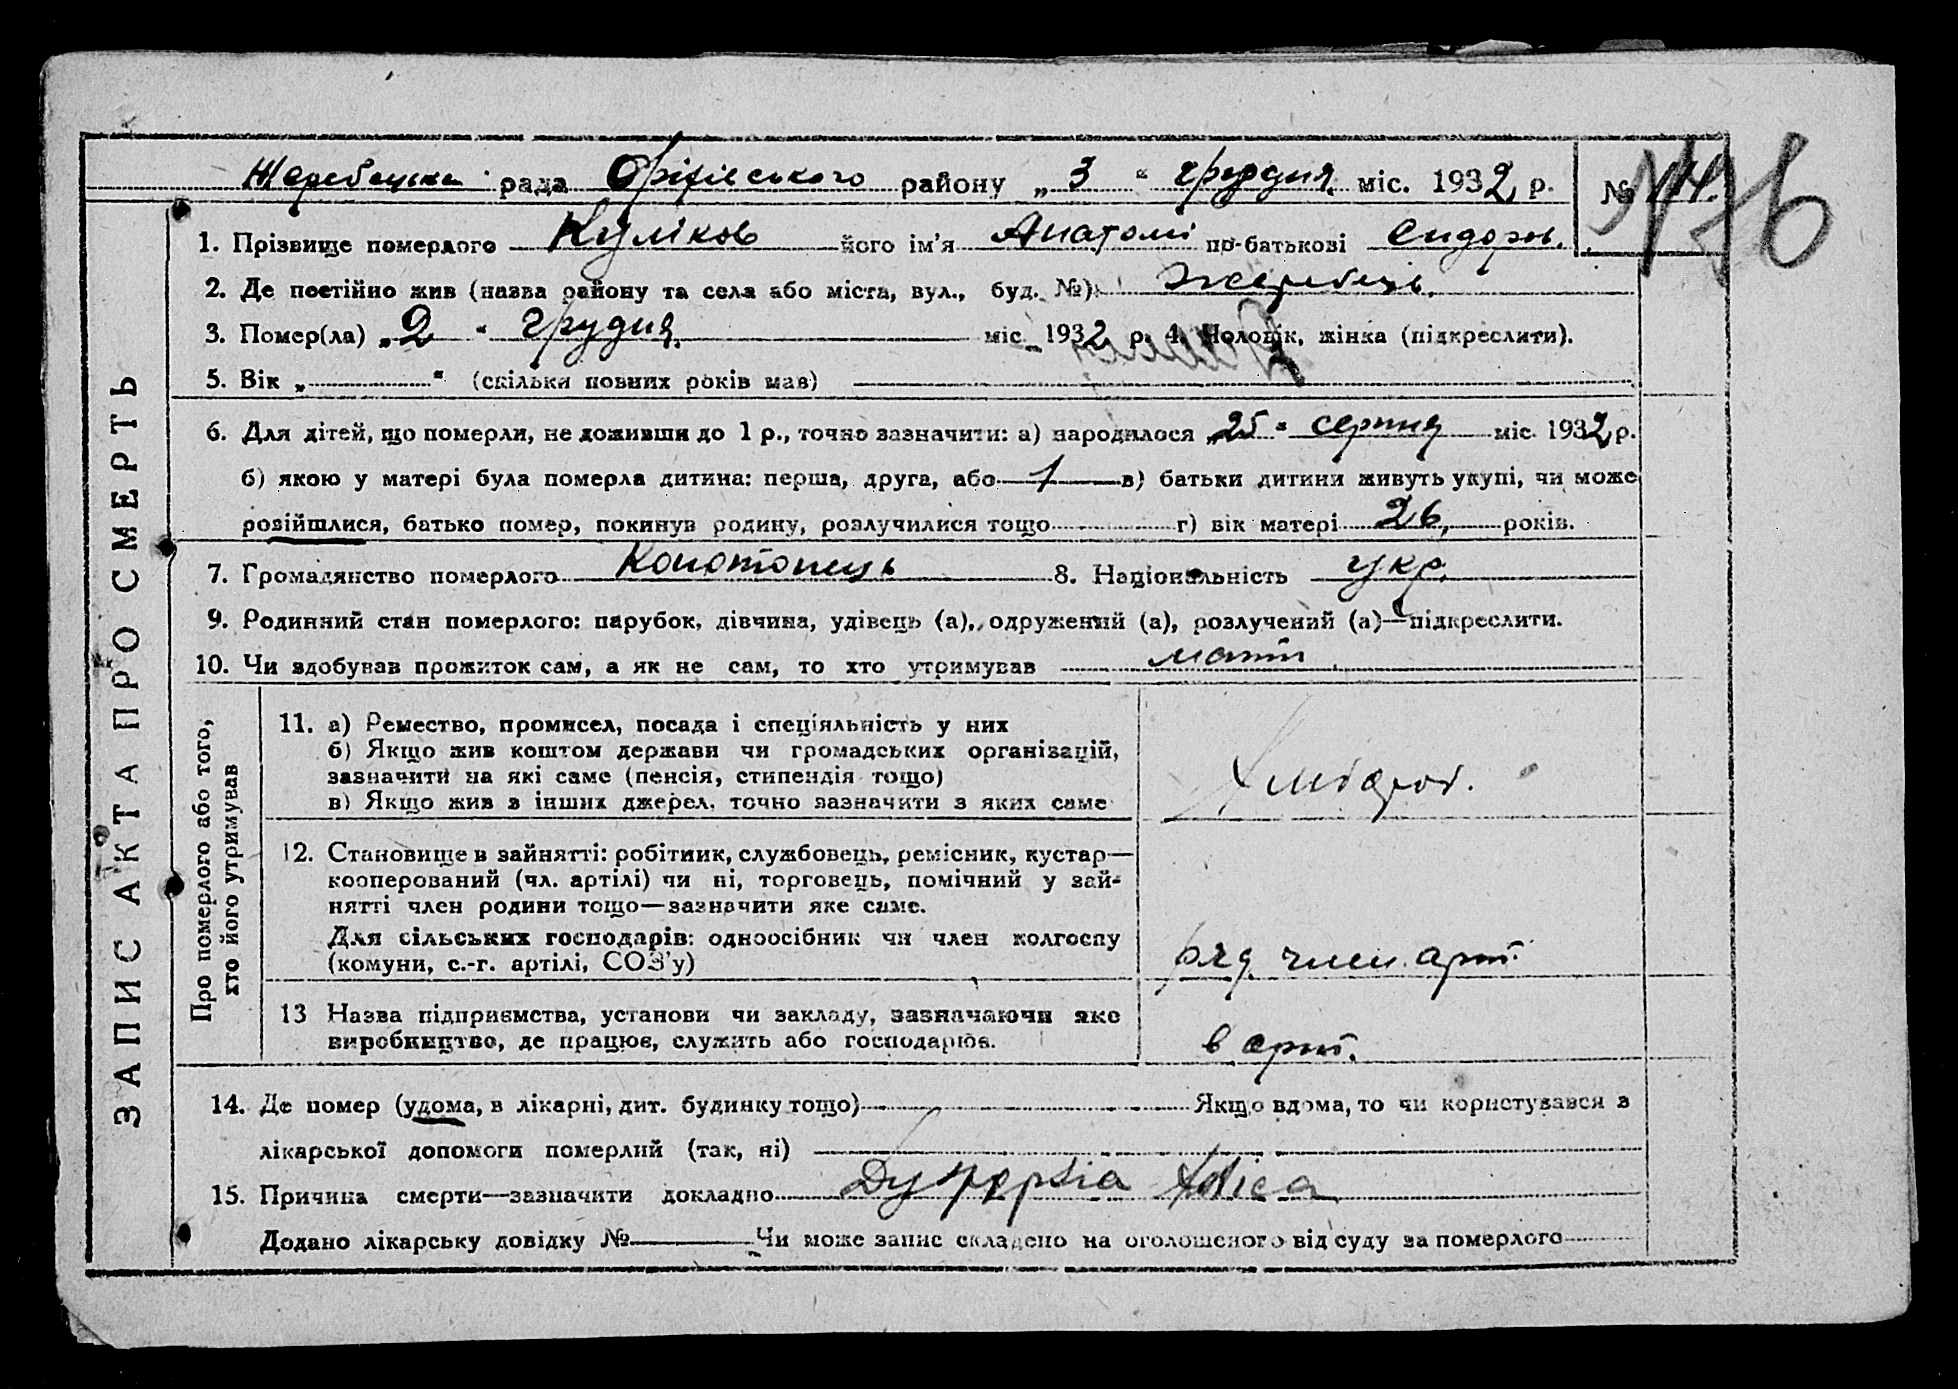 Жеребецька рада Оріхівського району „3“ грудня міс. 1932 р. №
1. Прізвище померлого Куліков його ім'я Анатолі по-батькові Сидоров.
2. Де постійно жив (назва району та села або міста, вул., буд. №) Жеребець.
3. Помер(ла) „2“ грудня міс. 1932 р. 4. Чоловік, жінка (підкреслити).
5. Вік „ “ (скільки повних років мав)
6. Для дітей, що померли, не доживши до 1 р., точно зазначити: а) народилося „25“ серпня міс. 1932 р.
б) якою у матері була померла дитина: перша, друга, або 1 в) батьки дитини живуть укупі, чи може
розійшлися, батько помер, покинув родину, розлучилися тощо г) вік матері 26, років.
7. Громадянство померлого 8. Національність укр.
9. Родинний стан померлого: парубок, дівчина, удівець (а), одружений (а), розлучений (а)—підкреслити.
10. Чи здобував прожиток сам, а як не сам, то хто утримував мати
ЗАПИС АКТА ПРО СМЕРТЬ
Про померлого або того,
хто його утримував
11. а) Ремество, промисел, посада і спеціяльність у них
б) Якщо жив коштом держави чи громадських організацій,
зазначити на які саме (пенсія, стипендія тощо)
в) Якщо жив з інших джерел, точно зазначити з яких саме
12. Становище в зайнятті: робітник, службовець, ремісник, кустар—
кооперований (чл. артілі) чи ні, торговець, помічний у зай-
нятті член родини тощо—зазначити яке саме.
Для сільських господарів: одноосібник чи член колгоспу
(комуни, с.-г. артілі, СОЗ'у)
ряд. член. арт.
13 Назва підприємства, установи чи закладу, зазначаючи яке
виробництво, де працює, служить або господарює.
в арт.
14. Де помер (удома, в лікарні, дит. будинку тощо) Якщо вдома, то чи користувався з
лікарської допомоги померлий (так, ні)
15. Причина смерти—зазначити докладно Dyspepsia
Додано лікарську довідку № Чи може запис складено на оголошеного від суду за померлого